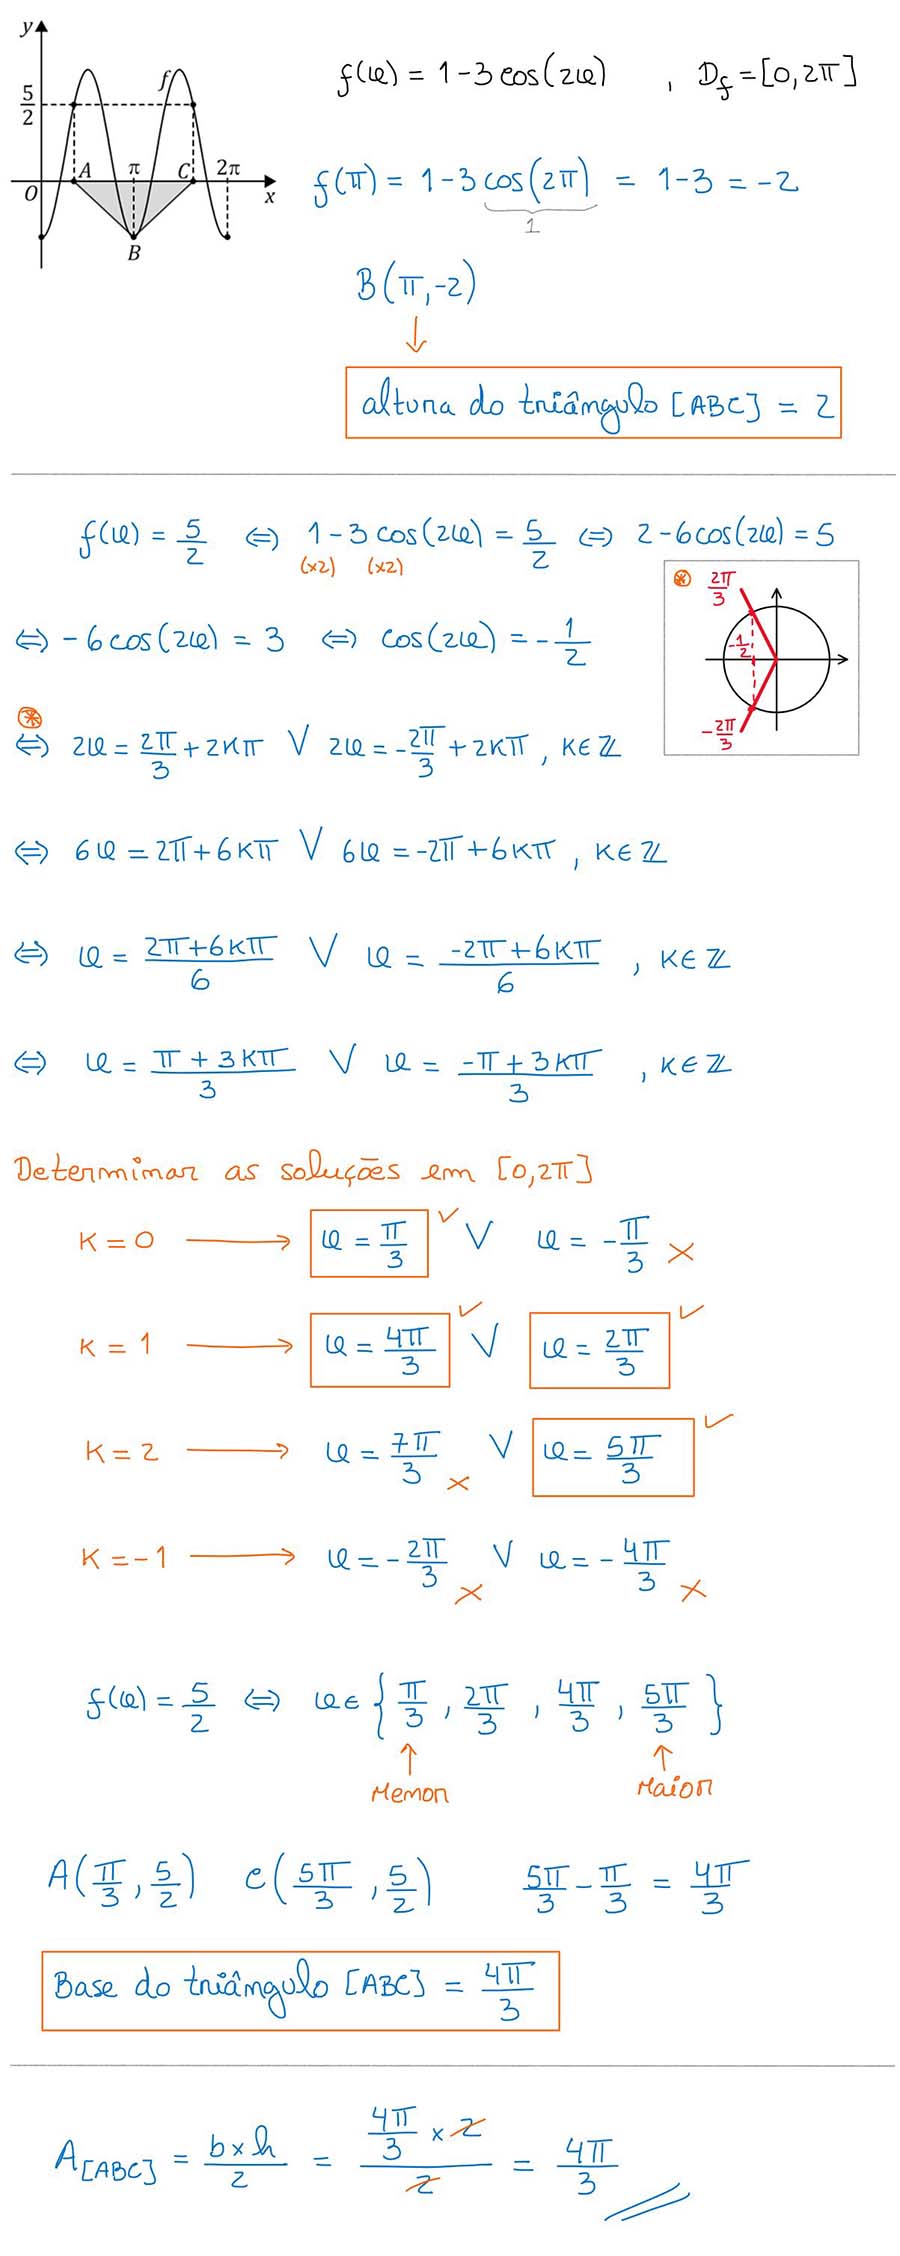 y
5/2
f
A π C 2π
O x
B
f(x) = 1-3cos(2x) , Df = [0,2π]
f(π) = 1-3cos(2π) = 1-3 = -2
1
B(π,-2)
↓
altura do triângulo [ABC] = 2
f(x) = 5/2 ⇔ 1-3cos(2x) = 5/2 ⇔ 2-6cos(2x) = 5
(x2) (x2)
⊛ 2π/3
-1/2
-2π/3
⇔ -6cos(2x) = 3 ⇔ cos(2x) = -1/2
⊛
⇔ 2x = 2π/3 + 2kπ ∨ 2x = -2π/3 + 2kπ , k∈ℤ
⇔ 6x = 2π+6kπ ∨ 6x = -2π+6kπ , k∈ℤ
⇔ x = (2π+6kπ)/6 ∨ x = (-2π+6kπ)/6 , k∈ℤ
⇔ x = (π+3kπ)/3 ∨ x = (-π+3kπ)/3 , k∈ℤ
Determinar as soluções em [0,2π]
k=0 → x = π/3 ✓ ∨ x = -π/3 ×
k=1 → x = 4π/3 ✓ ∨ x = 2π/3 ✓
k=2 → x = 7π/3 × ∨ x = 5π/3 ✓
k=-1 → x = -2π/3 × ∨ x = -4π/3 ×
f(x) = 5/2 ⇔ x∈ {π/3, 2π/3, 4π/3, 5π/3}
↑ ↑
Menor Maior
A(π/3, 5/2) C(5π/3, 5/2) 5π/3 - π/3 = 4π/3
Base do triângulo [ABC] = 4π/3
A[ABC] = (b×h)/2 = (4π/3 × 2)/2 = 4π/3